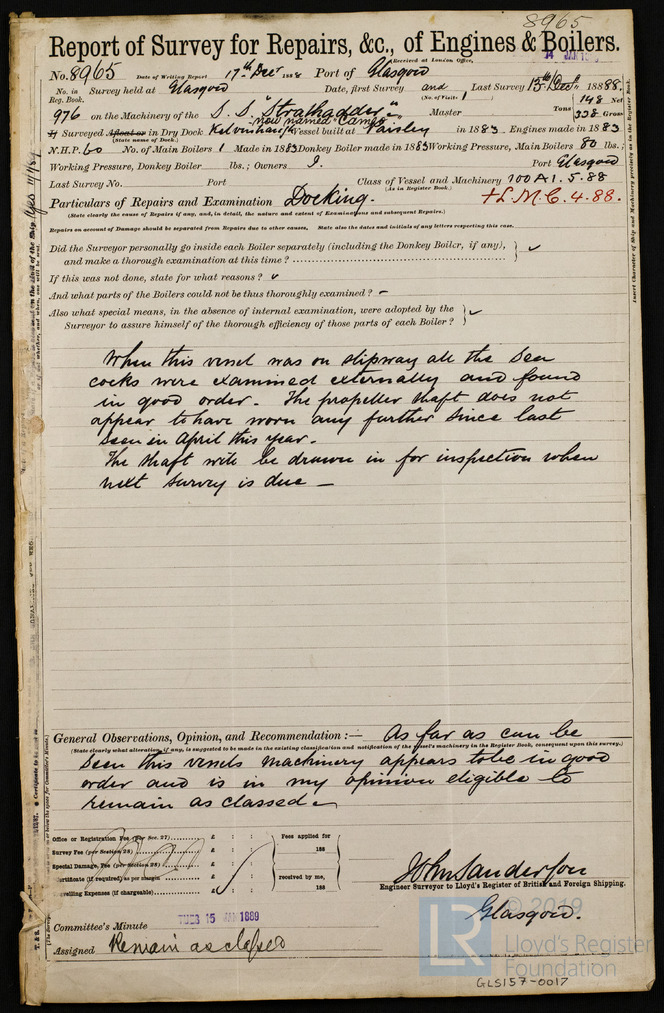 8965
Report of Survey for Repairs, &c., of Engines & Boilers.
Received at London Office, 14 JAN
No. 8965 Date of Writing Report 17th Decr 1888 Port of Glasgow
No. in Reg. Book. Survey held at Glasgow Date, first Survey and Last Survey 15th Decr 1888.
(No. of Visits: 1)
976 on the Machinery of the S.S. "Strathadder" Master Tons 148 Net 338 Gross
now named
Surveyed Afloat or in Dry Dock Kelvinhaugh Vessel built at Paisley in 1883. Engines made in 1883
(State name of Dock.)
N.H.P. 60 No. of Main Boilers 1 Made in 1883 Donkey Boiler made in 1883 Working Pressure, Main Boilers 80 lbs.;
Working Pressure, Donkey Boiler lbs.; Owners Port Glasgow
Last Survey No. Port Class of Vessel and Machinery 100A1. 5.88
(As in Register Book.)
Particulars of Repairs and Examination Docking. +L.M.C. 4.88.
(State clearly the cause of Repairs if any, and, in detail, the nature and extent of Examinations and subsequent Repairs.)
Repairs on account of Damage should be separated from Repairs due to other causes, State also the dates and initials of any letters respecting this case.
Did the Surveyor personally go inside each Boiler separately (including the Donkey Boiler, if any),
and make a thorough examination at this time?
If this was not done, state for what reasons?
And what parts of the Boilers could not be thus thoroughly examined? –
Also what special means, in the absence of internal examination, were adopted by the
Surveyor to assure himself of the thorough efficiency of those parts of each Boiler?
When this vessel was on slipway all the Sea
cocks were examined externally and found
in good order. The propeller shaft does not
appear to have worn any further since last
seen in April this year.
The shaft will be drawn in for inspection when
next survey is due –
General Observations, Opinion, and Recommendation :— As far as can be
(State clearly what alteration, if any, is suggested to be made in the existing classification and notification of the vessel's machinery in the Register Book, consequent upon this survey.)
seen this vessels machinery appears to be in good
order and is in my opinion eligible to
remain as classed.
Office or Registration Fee (per Sec. 27) £ : : Fees applied for
Survey Fee (per Section 28) £ : : 188
Special Damage Fee (per Section 28) £ : :
Certificate (if required) as per margin £ : : received by me,
Travelling Expenses (if chargeable) £ : : 188
John Sanderson
Engineer Surveyor to Lloyd's Register of British and Foreign Shipping.
Glasgow.
Committee's Minute TUES 15 JAN 1889
Assigned Remain as classed
LR © 2019
Lloyd's Register
Foundation
GLS157-0017